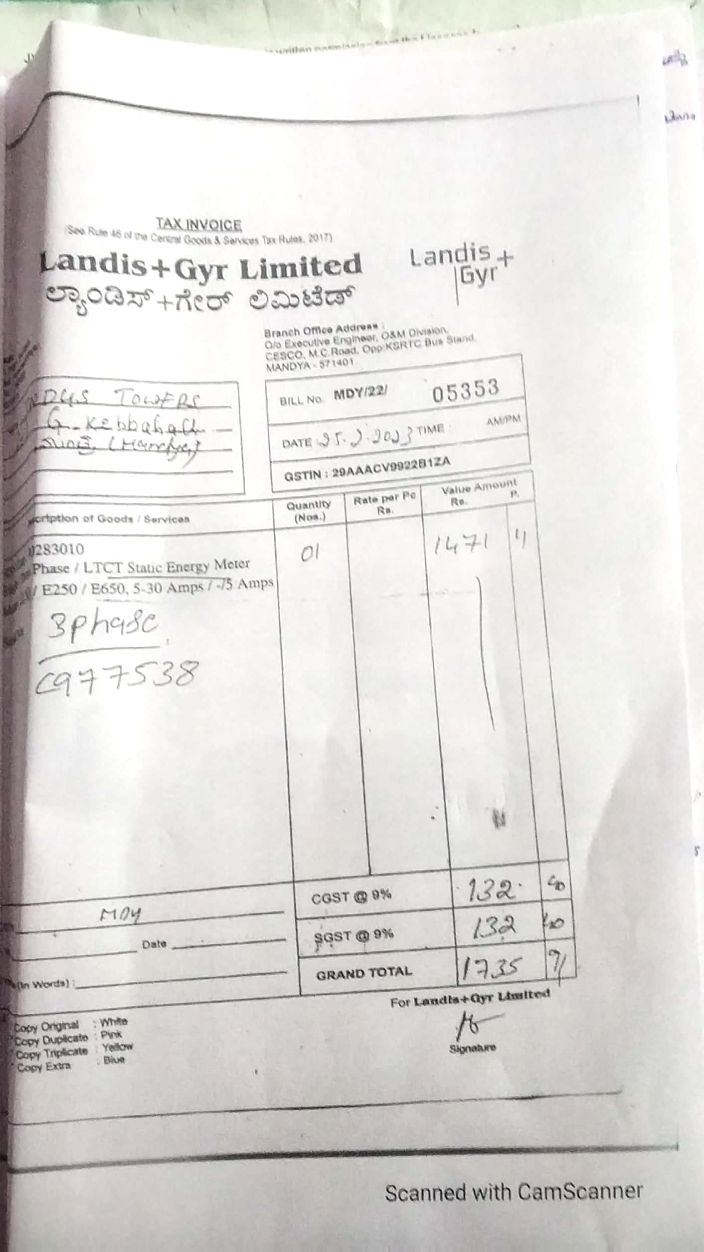 TAX INVOICE
(See Rule 46 of the Central Goods & Services Tax Rules, 2017)
Landis+Gyr Limited
Landis+
Gyr
ಲ್ಯಾಂಡಿಸ್+ಗೇರ್ ಲಿಮಿಟೆಡ್
Branch Office Address :
O/o Executive Engineer, O&M Division,
CESCO, M.C.Road, Opp.KSRTC Bus Stand,
MANDYA - 571401
TOWERS
G. Kebbahalli
(Mandya)
BILL No. MDY/22/ 05353
DATE 25.2.2023 TIME : AM/PM
GSTIN : 29AAACV9922B1ZA
cription of Goods / Services
Quantity (Nos.)
Rate per Pc Rs.
Value Amount Rs. P.
283010
Phase / LTCT Static Energy Meter
/ E250 / E650, 5-30 Amps / -/5 Amps
01
1471
3phase
C977538
CGST @ 9% 132
SGST @ 9% 132
GRAND TOTAL 1735
MDY
Date
(In Words) :
For Landis+Gyr Limited
Signature
Copy Original : White
Copy Duplicate : Pink
Copy Triplicate : Yellow
Copy Extra : Blue
Scanned with CamScanner